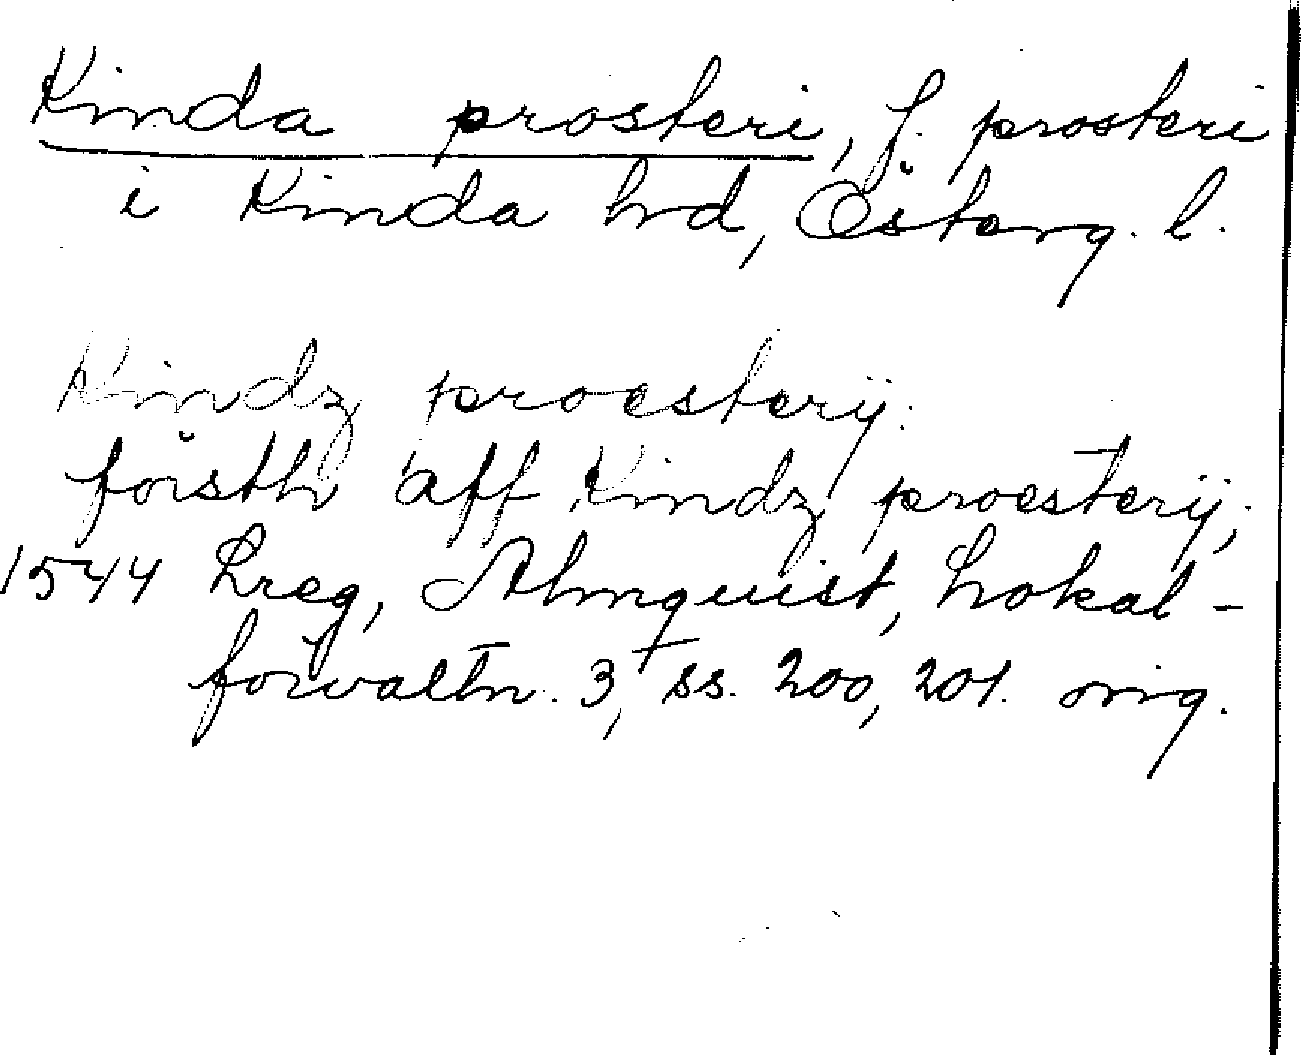 Kinda prosteri, f. prosteri
i Kinda hrd, Österg. l.
Kindz proesterij:
försth aff Kindz proesterij;
1544 Lreg, Almquist, Lokal-
förvaltn. 3, ss. 200, 201. orig.